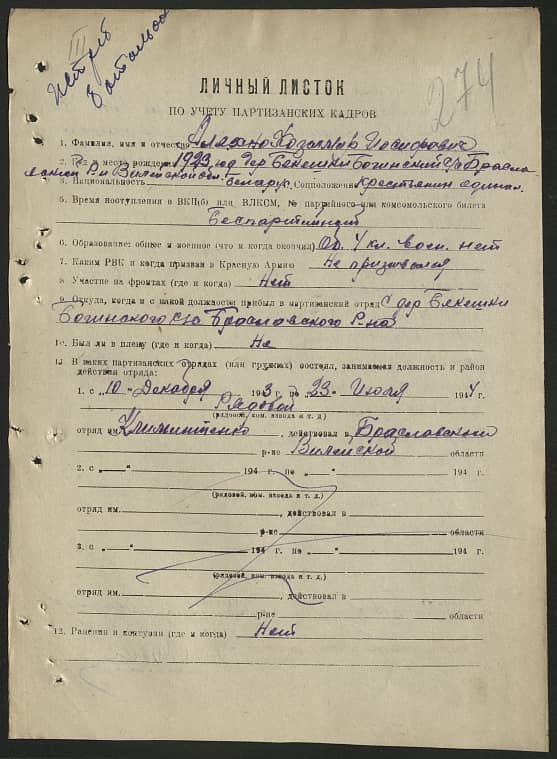 III
274
ЛИЧНЫЙ ЛИСТОК
ПО УЧЕТУ ПАРТИЗАНСКИХ КАДРОВ
1. Фамилия, имя и отчество Иосифович
2. Год и место рождения 1923 год дер Бекешки Богинский с/с Брасла
Р-н Вилейской обл.
3. Национальность Белорус. Соцположение Крестьянин единол.
5. Время поступления в ВКП(б) или ВЛКСМ, № партийного или комсомольского билета
Беспартийный
6. Образование: общее и военное (что и когда окончил) Об. 4 кл. воен. нет
7. Каким РВК и когда призван в Красную Армию Не призывался
8. Участие на фронтах (где и когда) Нет
9. Откуда, когда и с какой должности прибыл в партизанский отряд С дер Бекешки
Богинского с/с Брасловского Р-на
10. Был ли в плену (где и когда) Не
11. В каких партизанских отрядах (или группах) состоял, занимаемая должность и район
действия отряда:
1. с „10" Декабря 1943 г. по „23" Июля 1944 г.
Рядовой
(рядовой, ком. взвода и т. д.)
отряд им. , действовал в Браславский
р-не Вилейской области
2. с „ " 194 г. по „ " 194 г.
(рядовой, ком. взвода и т. д.)
отряд им. , действовал в
р-не области
3. с „ " 194 г. по „ " 194 г.
(рядовой, ком. взвода и т. д.)
отряд им. , действовал в
р-не области
12. Ранения и контузии (где и когда) Нет